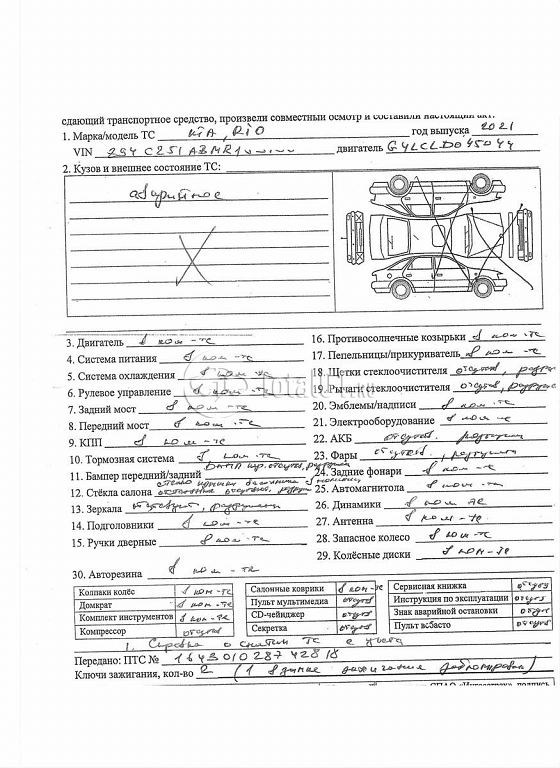 сдающий транспортное средство, произвели совместный осмотр и составили настоящий акт:
1. Марка/модель ТС KIA, RIO год выпуска 2021
VIN Z94C251ABMR1 двигатель G4LCLD045044
2. Кузов и внешнее состояние ТС:
аварийное
3. Двигатель в ком-те
4. Система питания в ком-те
5. Система охлаждения в ком-те
6. Рулевое управление в ком-те
7. Задний мост в ком-те
8. Передний мост в ком-те
9. КПП в ком-те
10. Тормозная система в ком-те
11. Бампер передний/задний
12. Стёкла салона
13. Зеркала отсутств, разрушены
14. Подголовники в ком-те
15. Ручки дверные в ком-те
16. Противосолнечные козырьки в ком-те
17. Пепельницы/прикуриватель в ком-те
18. Щетки стеклоочистителя отсутств, разруш
19. Рычаги стеклоочистителя отсутств, разруш
20. Эмблемы/надписи в ком-те
21. Электрооборудование в ком-те
22. АКБ отсутств. разрушен
23. Фары отсутств, разрушены
24. Задние фонари в ком-те
25. Автомагнитола в ком-те
26. Динамики в ком-те
27. Антенна в ком-те
28. Запасное колесо в ком-те
29. Колёсные диски в ком-те
30. Авторезина в ком-те
Колпаки колёс в ком-те
Домкрат в ком-те
Комплект инструментов в ком-те
Компрессор отсутв
Салонные коврики в ком-те
Пульт мультимедиа отсутв
CD-чейнджер отсутв
Секретка отсутв
Сервисная книжка отсутв
Инструкция по эксплуатации отсутв
Знак аварийной остановки отсутв
Пульт вебасто отсутв
1. Справка о снятии ТС с учета
Передано: ПТС № 164301028742818
Ключи зажигания, кол-во 2 (1 в замке зажигания заблокирован)